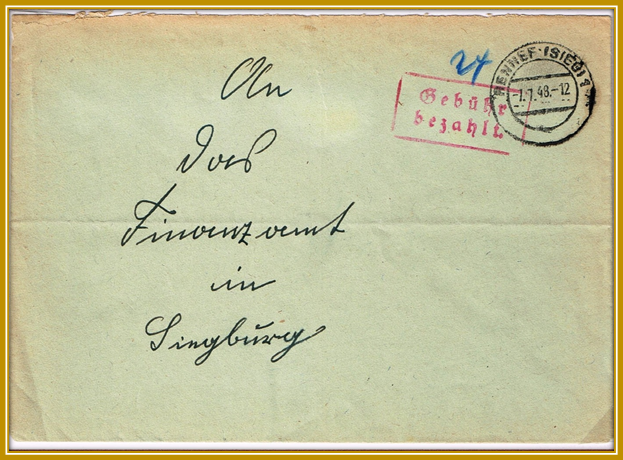 24
HENNEF (SIEG) 1
-7.7.48.-12
Gebühr
bezahlt.
An
das
Finanzamt
in
Siegburg